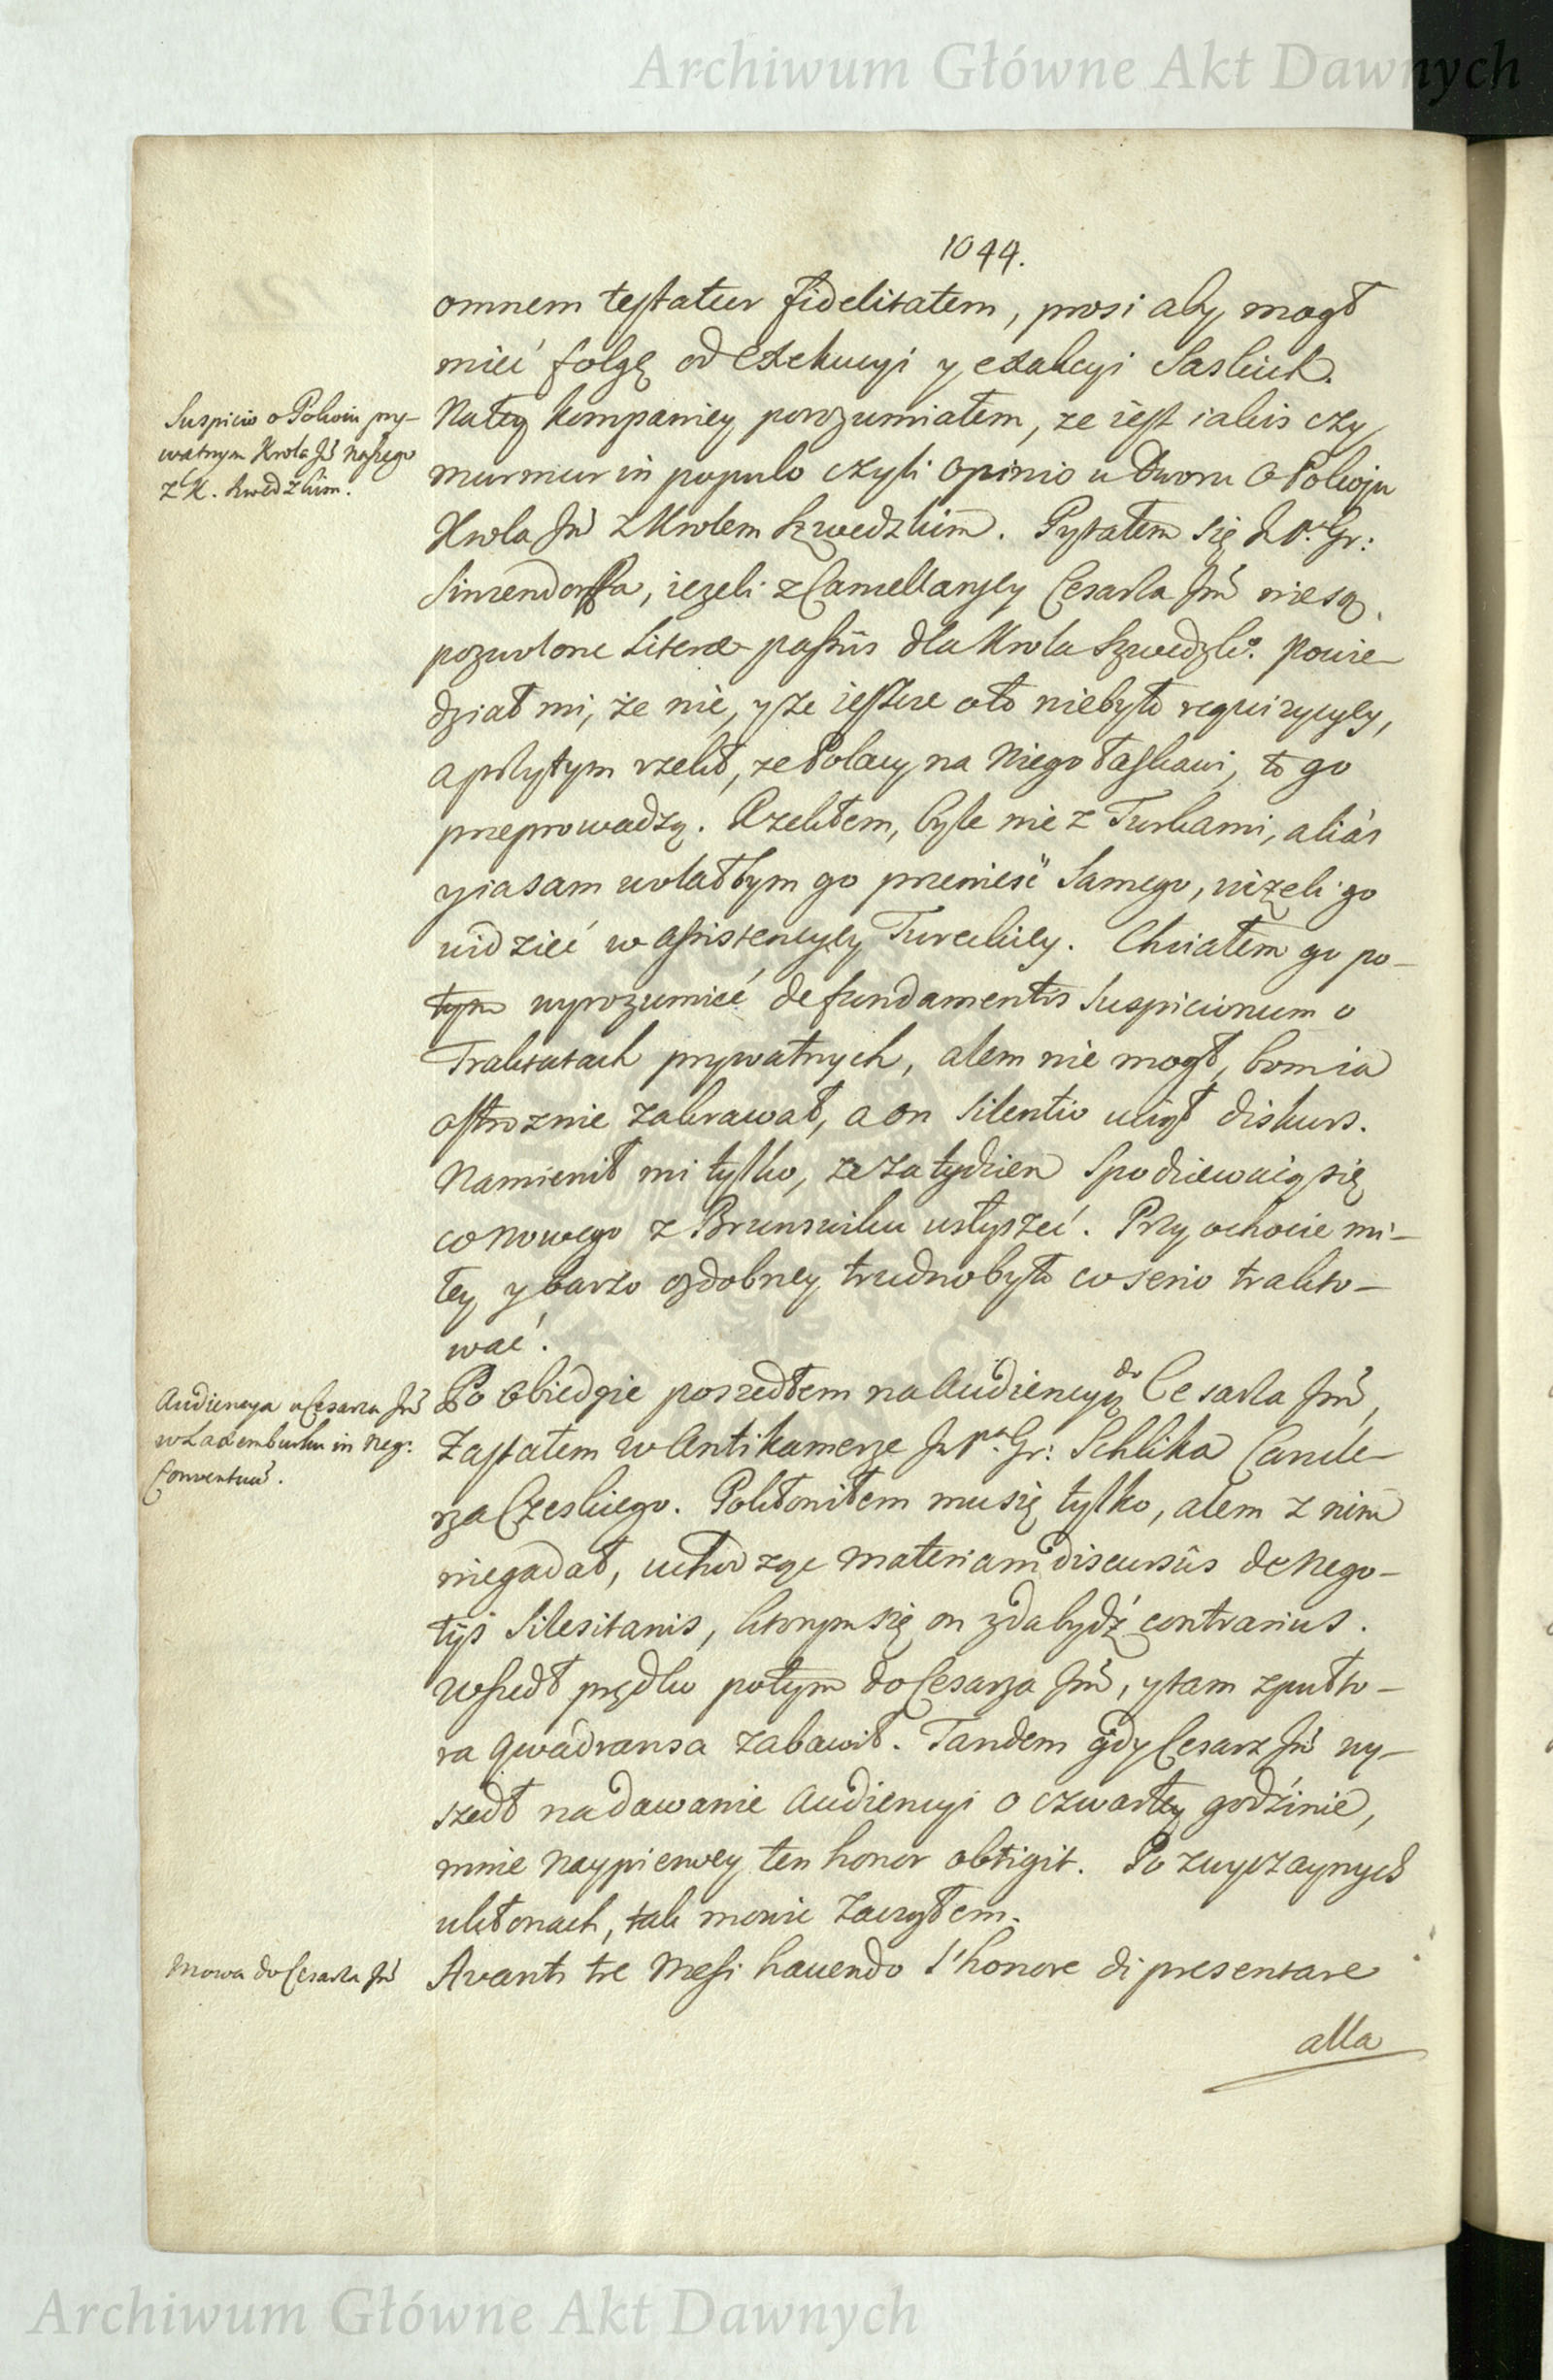 Archiwum Główne Akt Dawnych
1044.
omnem testatur fidelitatem, prosi aby mogł
mieć folgę od Exekucyi y exakcyi Saskich.
Suspicio o Pokoiu pry-
watnym Krola Jmci naszego
z K. Szwedzkim.
Na tey kompaniey porozumiałem, ze iest iakis czy
murmur in populo czyli opinio u Dworu o Pokoju
Krola Jmci z Krolem Szwedzkim. Pytałem się J Pa Gr:
Sinzendorffa, iezeli z Cancellaryey Cesarza Jmci nie są
pozwolone Literæ passus dla Krola Szwedzko. Powie-
dział mi, że nie, y że ieszcze oto niebyło requizycyey,
a przytym rzekł, ze Polacy na niego łaskawi, to go
przeprowadzą. Rzekłem, byle nie z Turkami, aliàs
y ia sam wolałbym go przenieść samego, niżeli go
widzieć w assistencyey Tureckiey. Chciałem go po-
tym wyrozumieć de fundamentis suspicionum o
Traktatach prywatnych, alem nie mogł, bom ia
ostroznie zakrawał, a on silentio uciął diskurs.
Namienił mi tylko, ze za tydzien spodziewaią się
co nowego z Brunswiku usłyszeć. Przy ochocie mi-
łey y barzo ozdobney trudno było co serio trakto-
wać.
Audiencya u Cesarza Jmci
w Laxemburku in Neg:
Conventus.
Po obiedzie poszedłem na Audiencyą do Cesarza Jmci,
Zastałem w Antikamerze J Pa Gr: Schlika Cancle-
rza Czeskiego. Pokłoniłem mu się tylko, alem z nim
niegadał, uchodząc materiam discursûs de Nego-
tijs Silesitanis, ktorym się on zda bydź contrarius.
Wszedł prędko potym do Cesarza Jmci, y tam z pułto-
ra qwadransa zabawił. Tandem gdy Cesarz Jmci wy-
szedł na dawanie Audiencyi o czwartey godzinie,
mnie naypierwey ten honor obtigit. Po zwyczaynych
ukłonach, tak mowic zacząłem.
Mowa do Cesarza Jmci
Avanti tre Mesi havendo l'honore di presentare
alla
Archiwum Główne Akt Dawnych